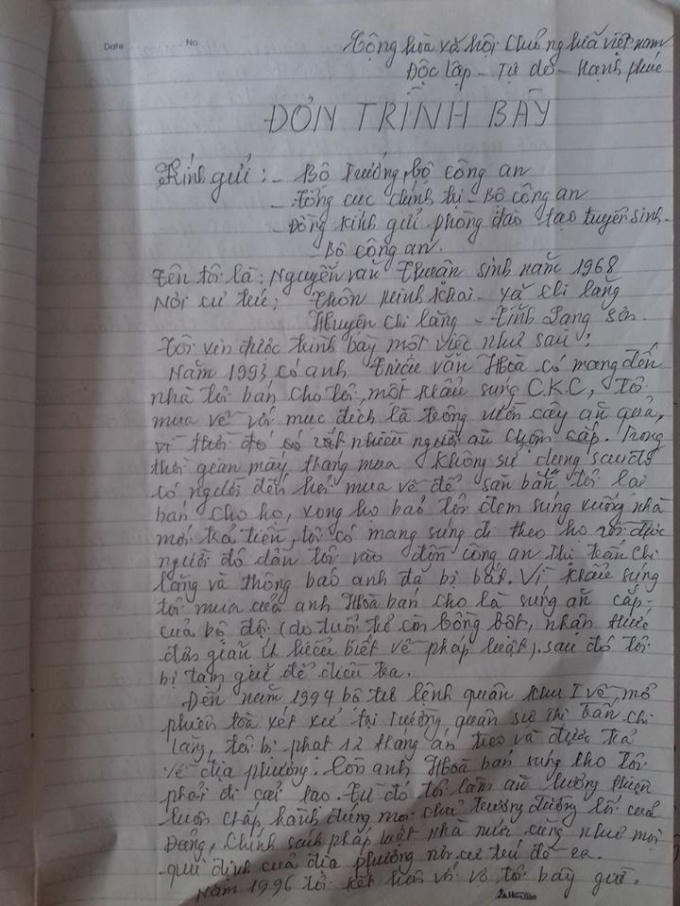 Date No
Cộng hòa xã hội Chủ nghĩa việt nam
Độc lập - Tự do - Hạnh phúc
ĐƠN TRÌNH BÀY
Kính gửi: - Bộ Trưởng bộ công an
- tổng cục chính trị - Bộ công an
- Đồng kính gửi phòng đào tạo tuyển sinh -
- Bộ công an.
Tên tôi là: Nguyễn văn Thuân sinh năm 1968
Nơi cư trú: Thôn minh khai - xã chi lăng
Huyện chi lăng - Tỉnh Lạng Sơn.
Tôi xin được trình bày một việc như sau:
Năm 1993 có anh Triều văn Hoà có mang đến
nhà tôi bán cho tôi, một khẩu súng C.K.C, tôi
mua về với mục đích là trông vườn cây ăn quả,
vì thời đó có rất nhiều người ăn trộm cắp. Trong
thời gian mấy tháng mua không sử dụng sau đó
có người đến hỏi mua về để săn bắn tôi lại
bán cho họ, xong họ bảo tôi đem súng xuống nhà
mới trả tiền, tôi có mang súng đi theo họ rồi được
người đó dẫn tôi vào đồn công an thị trấn chi
lăng và thông báo anh đã bị bắt. Vì khẩu súng
tôi mua của anh Hoà bán cho là súng ăn cắp
của bộ đội (do tuổi trẻ còn bồng bột, nhận thức
đơn giản ít hiểu biết về pháp luật), sau đó tôi
bị tạm giữ để điều tra.
Đến năm 1994 bộ tư lệnh quân khu I về mở
phiên toà xét xử tại trường quân sự thị trấn chi
lăng, tôi bị phạt 12 tháng án treo và được trả
về địa phương. Còn anh Hoà bán súng cho tôi
phải đi cải tạo. từ đó tôi làm ăn lương thiện
luôn chấp hành đúng mọi chủ trương đường lối của
Đảng, Chính sách pháp luật nhà nước cũng như mọi
qui định của địa phương nơi cư trú đề ra.
Năm 1996 tôi kết hôn với vợ tôi bây giờ.